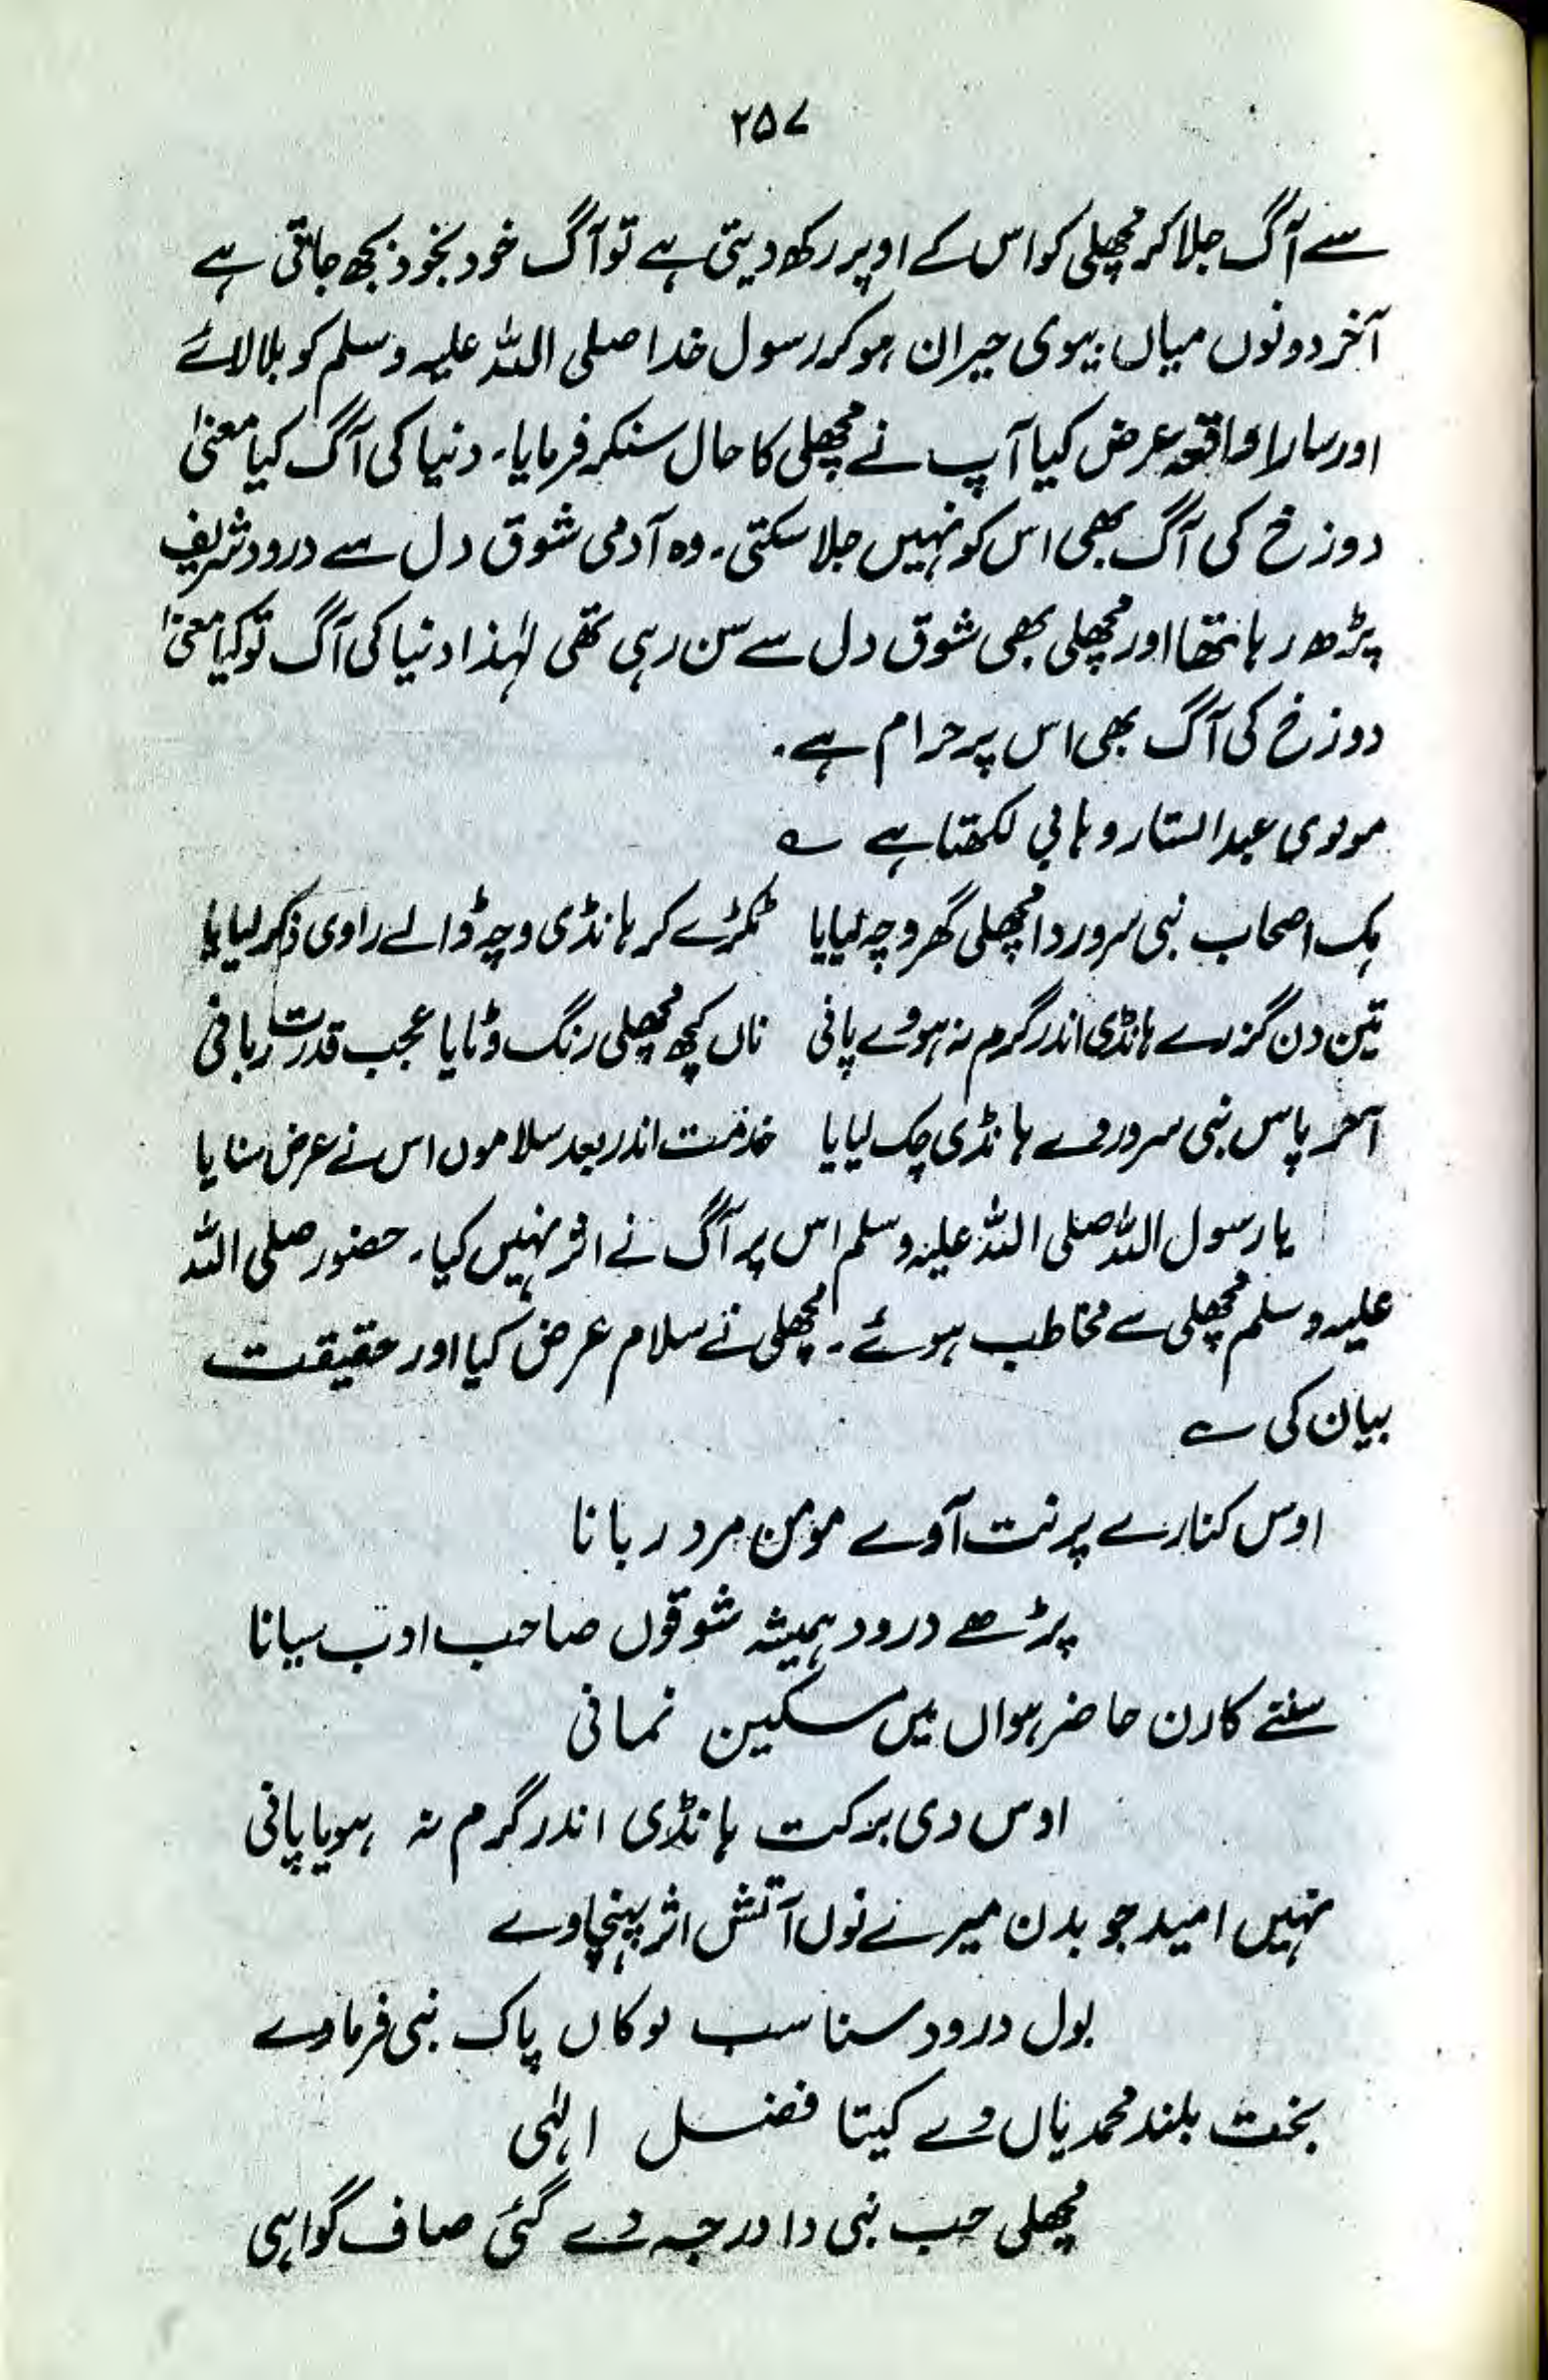 ۲۵۷
سے آگ جلا کر مچھلی کو اس کے اوپر رکھ دیتی ہے تو آگ خود بخود بجھ جاتی ہے
آخر دونوں میاں بیوی حیران ہو کر رسول خدا صلی اللہ علیہ وسلم کو بلا لائے
اور سارا واقعہ عرض کیا آپ نے مچھلی کا حال سنکر فرمایا۔ دنیا کی آگ کیا معنیٰ
دوزخ کی آگ بھی اس کو نہیں جلا سکتی۔ وہ آدمی شوق دل سے درود شریف
پڑھ رہا تھا اور مچھلی بھی شوق دل سے سن رہی تھی لہٰذا دنیا کی آگ تو کیا معنیٰ
دوزخ کی آگ بھی اس پر حرام ہے۔
مولوی عبدالستار وہابی لکھتا ہے ؎
ہک اصحاب نبی سرور دا مچھلی گھر وچہ لیایا ٹکڑے کر ہانڈی وچہ ڈالے راوی ذکر لیایا
تین دن گزرے ہانڈی اندر گرم نہ ہووے پانی ناں کچھ مچھلی رنگ وٹایا عجب قدرت ربانی
آخر پاس نبی سرور دے ہانڈی چک لیایا خدمت اندر بعد سلاموں اس نے عرض سنایا
یا رسول اللہ صلی اللہ علیہ وسلم اس پر آگ نے اثر نہیں کیا۔ حضور صلی اللہ
علیہ وسلم مچھلی سے مخاطب ہوئے۔ مچھلی نے سلام عرض کیا اور حقیقت
بیان کی ؎
اوس کنارے پر نت آوے مومن مرد ربانا
پڑھے درود ہمیشہ شوقوں صاحب ادب سیانا
سننے کارن حاضر ہواں میں مسکین نمانی
اوس دی برکت ہانڈی اندر گرم نہ ہویا پانی
نہیں امید جو بدن میرے نوں آتش اثر پہنچاوے
بول درود سنا سب لوکاں پاک نبی فرماوے
بخت بلند محمدیاں دے کیتا فضل الہٰی
مچھلی حب نبی دا درجہ دے گئی صاف گواہی